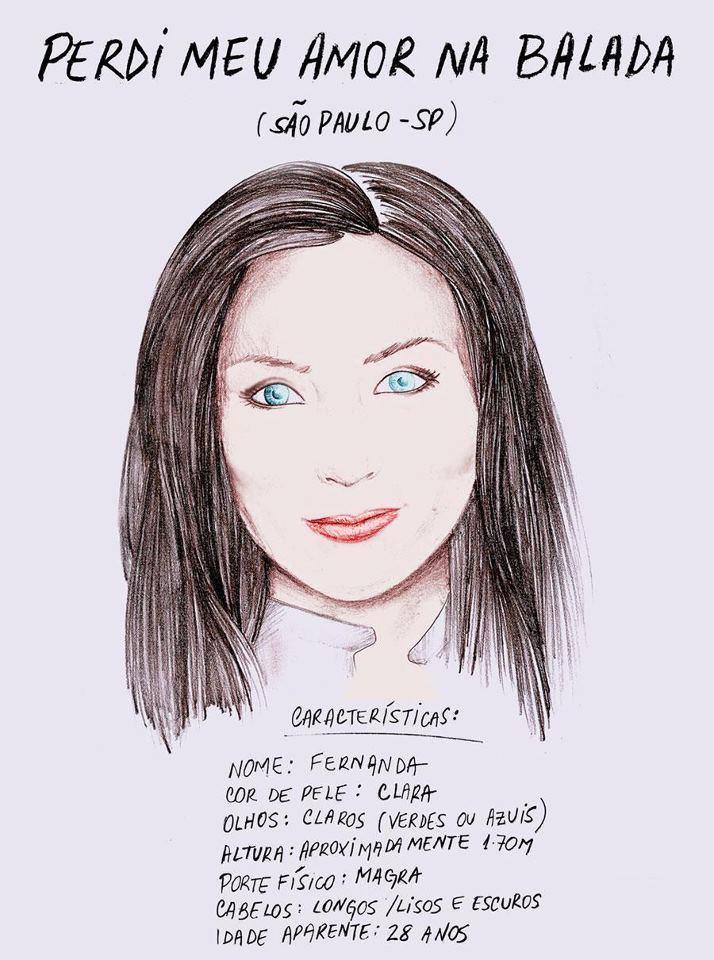 PERDI MEU AMOR NA BALADA
(SÃO PAULO - SP)
CARACTERÍSTICAS:
NOME: FERNANDA
COR DE PELE: CLARA
OLHOS: CLAROS (VERDES OU AZUIS)
ALTURA: APROXIMADAMENTE 1.70M
PORTE FÍSICO: MAGRA
CABELOS: LONGOS /LISOS E ESCUROS
IDADE APARENTE: 28 ANOS